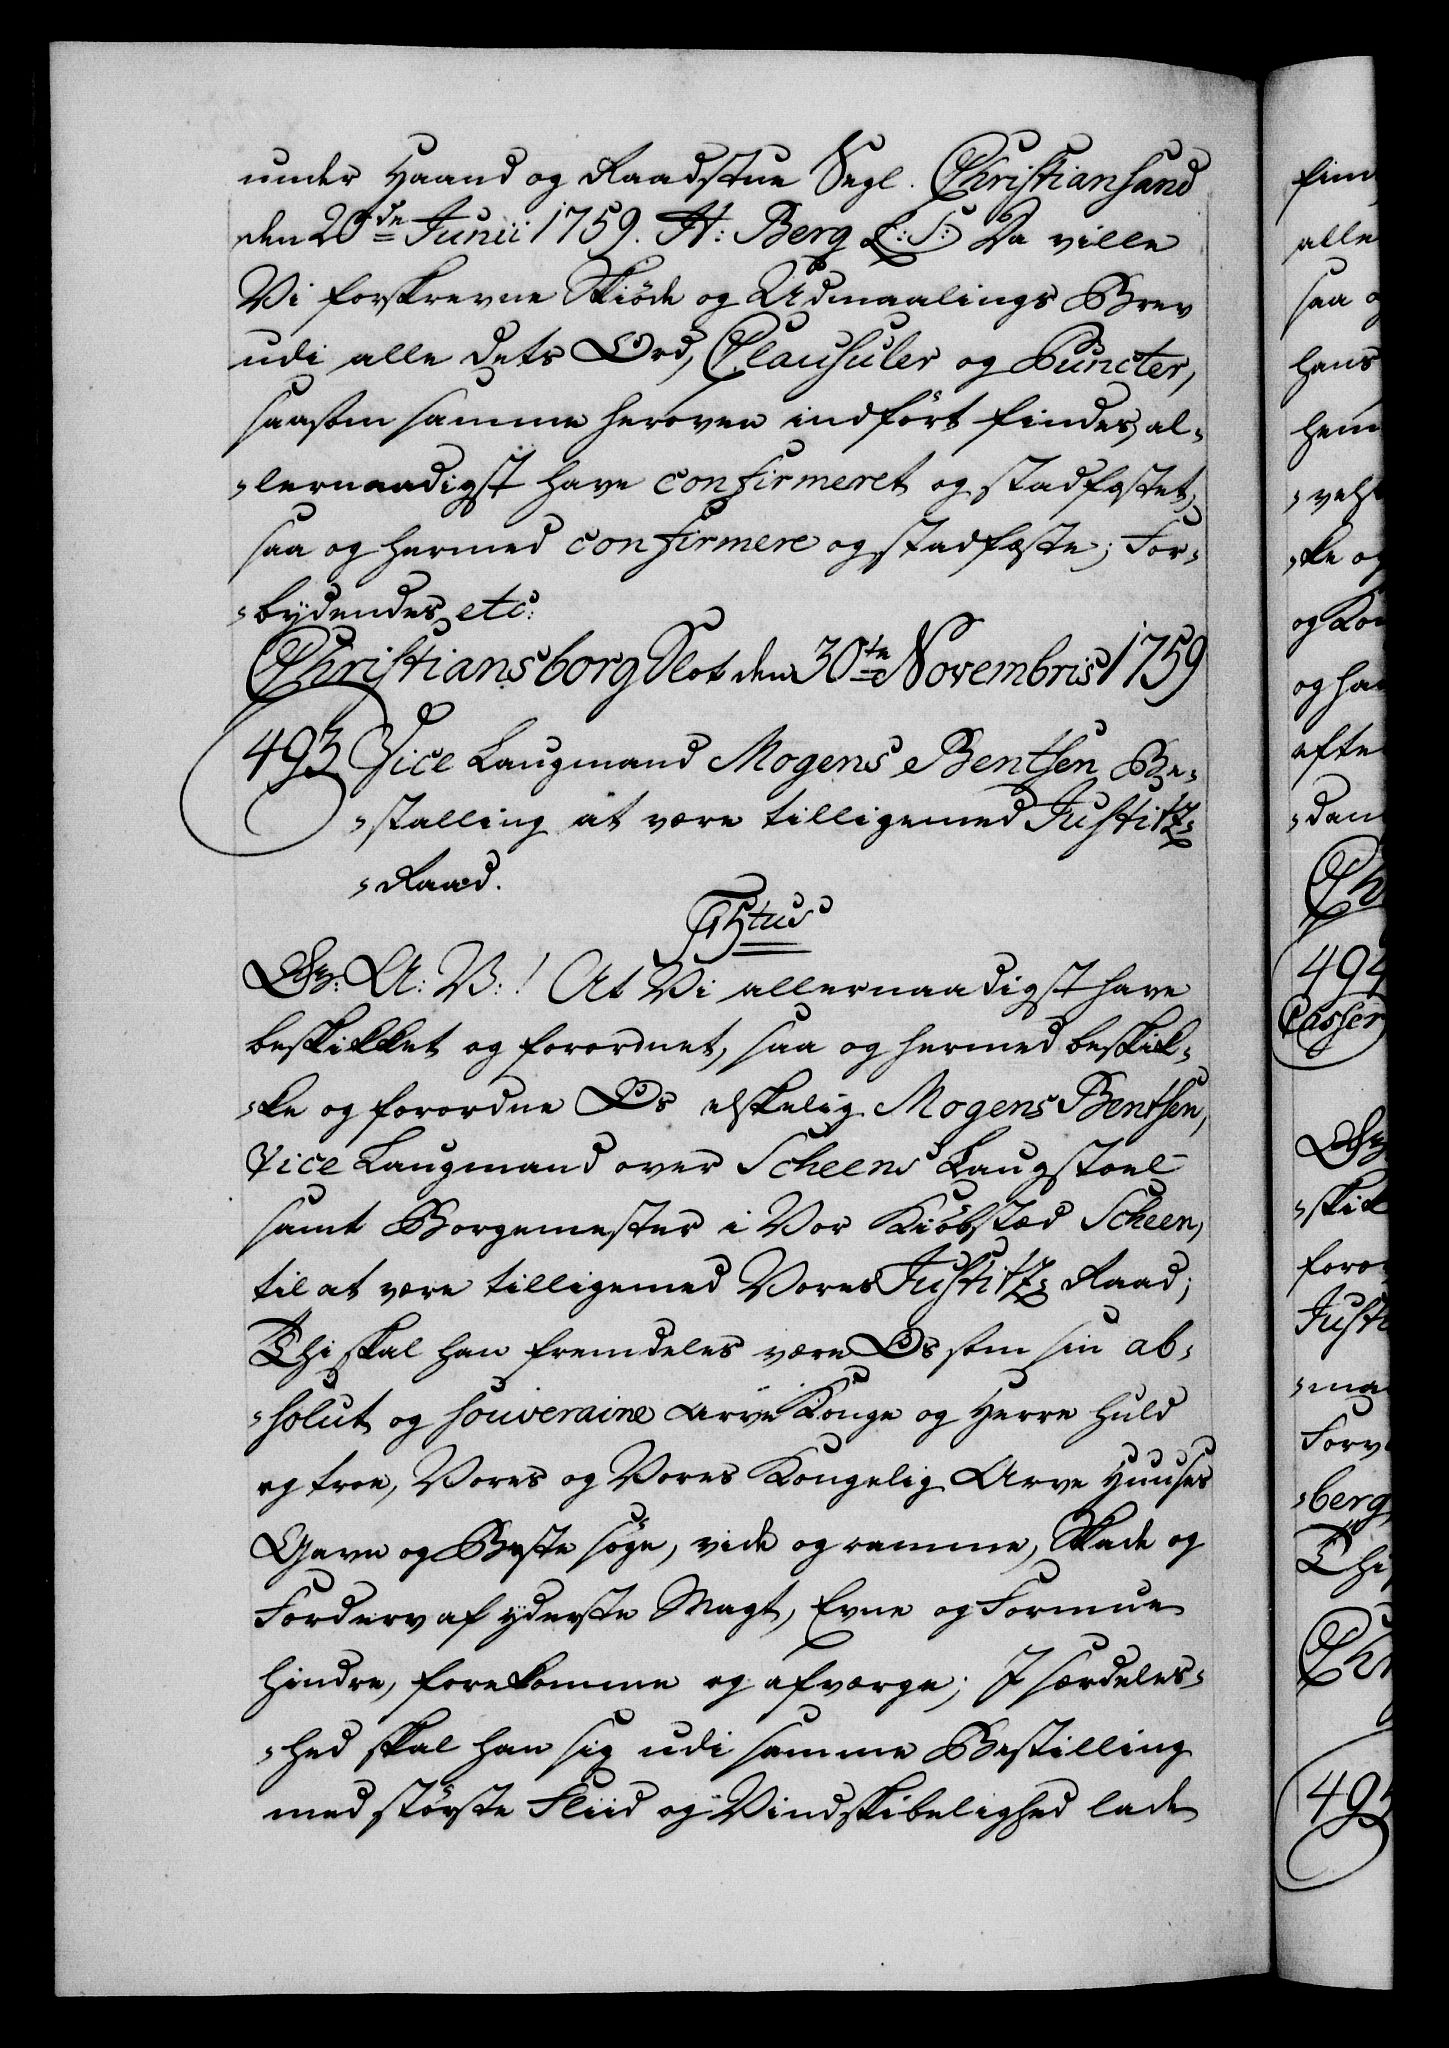 under Haand og Raadstue Segl. Christiansand
den 20de Junii 1759. H: Berg L:S: Da ville
Vi forskrevne Skiöde og Udmaalings Brev
udi alle dets Ord, Clausuler og Puncter,
saasom samme heroven indfört findes, al-
-lernaadigst have confirmeret og stadfæstet,
saa og hermed confirmere og stadfæste; For-
-bydendes etc:
Christiansborg Slot den 30te Novembris 1759
493 Vice Laugmand Mogens Bentsen Be-
-stalling at være tilligemed Justitz-
-Raad.
G: A: V:! At Vi allernaadigst have
beskikket og forordnet, saa og hermed beskik-
-ke og forordne Os elskelig Mogens Bentsen,
Vice Laugmand over Scheens Laugstoel
samt Borgemester i Vor Kiöbstæd Scheen,
til at være tilligemed Vores Justitz Raad;
Thi skal han fremdeles være Os som sin ab-
-solut og souveraine Arve Konge og Herre huld
og troe, Vores og Vores Kongelig Arve Huuses
Gavn og Beste söge, vide og ramme, Skade og
Forderv af yderste Magt, Evne og Formue
hindre, forekomme og afværge; I særdeles-
-hed skal han sig udi samme Bestilling
med störste Fliid og Vindskibelighed lade
fin
alle
saa
hans
hem
-ke og
og
og
efte
-dan
Ch
494
Casser
-skik
foror
Justi
-ma
Forv
-berg
Thi
Chr
49